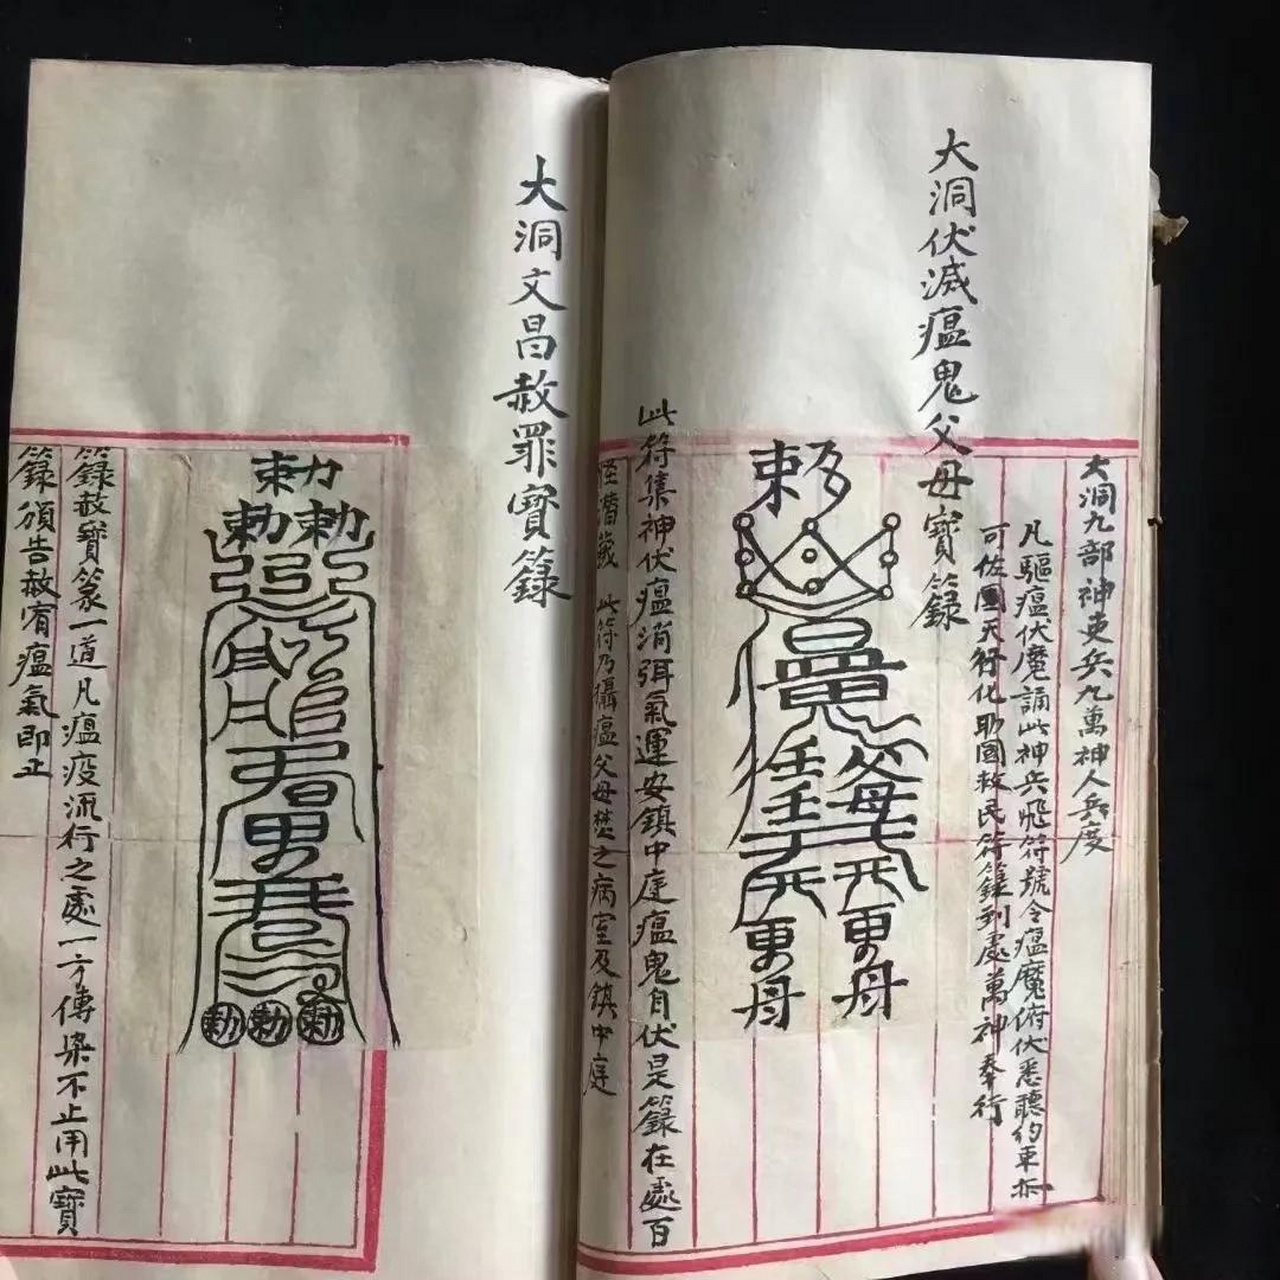 大洞九部神吏兵九萬神人兵度
凡驅瘟伏魔誦此神兵飛符號令瘟魔俯伏悉聽約束
可佐國天行化助國救民符籙到處萬神奉行
大洞伏滅瘟鬼父母寶籙
此符集神伏瘟消弭氣運安鎮中庭瘟鬼自伏是籙在處百
怪潛藏 此符乃攝瘟父母焚之病室及鎮中庭
大洞文昌赦罪寶籙
勅
勅勅
勅勅
籙赦寶篆一道凡瘟疫流行之處一方傳染不止用此寶
籙頒告赦宥瘟氣即止